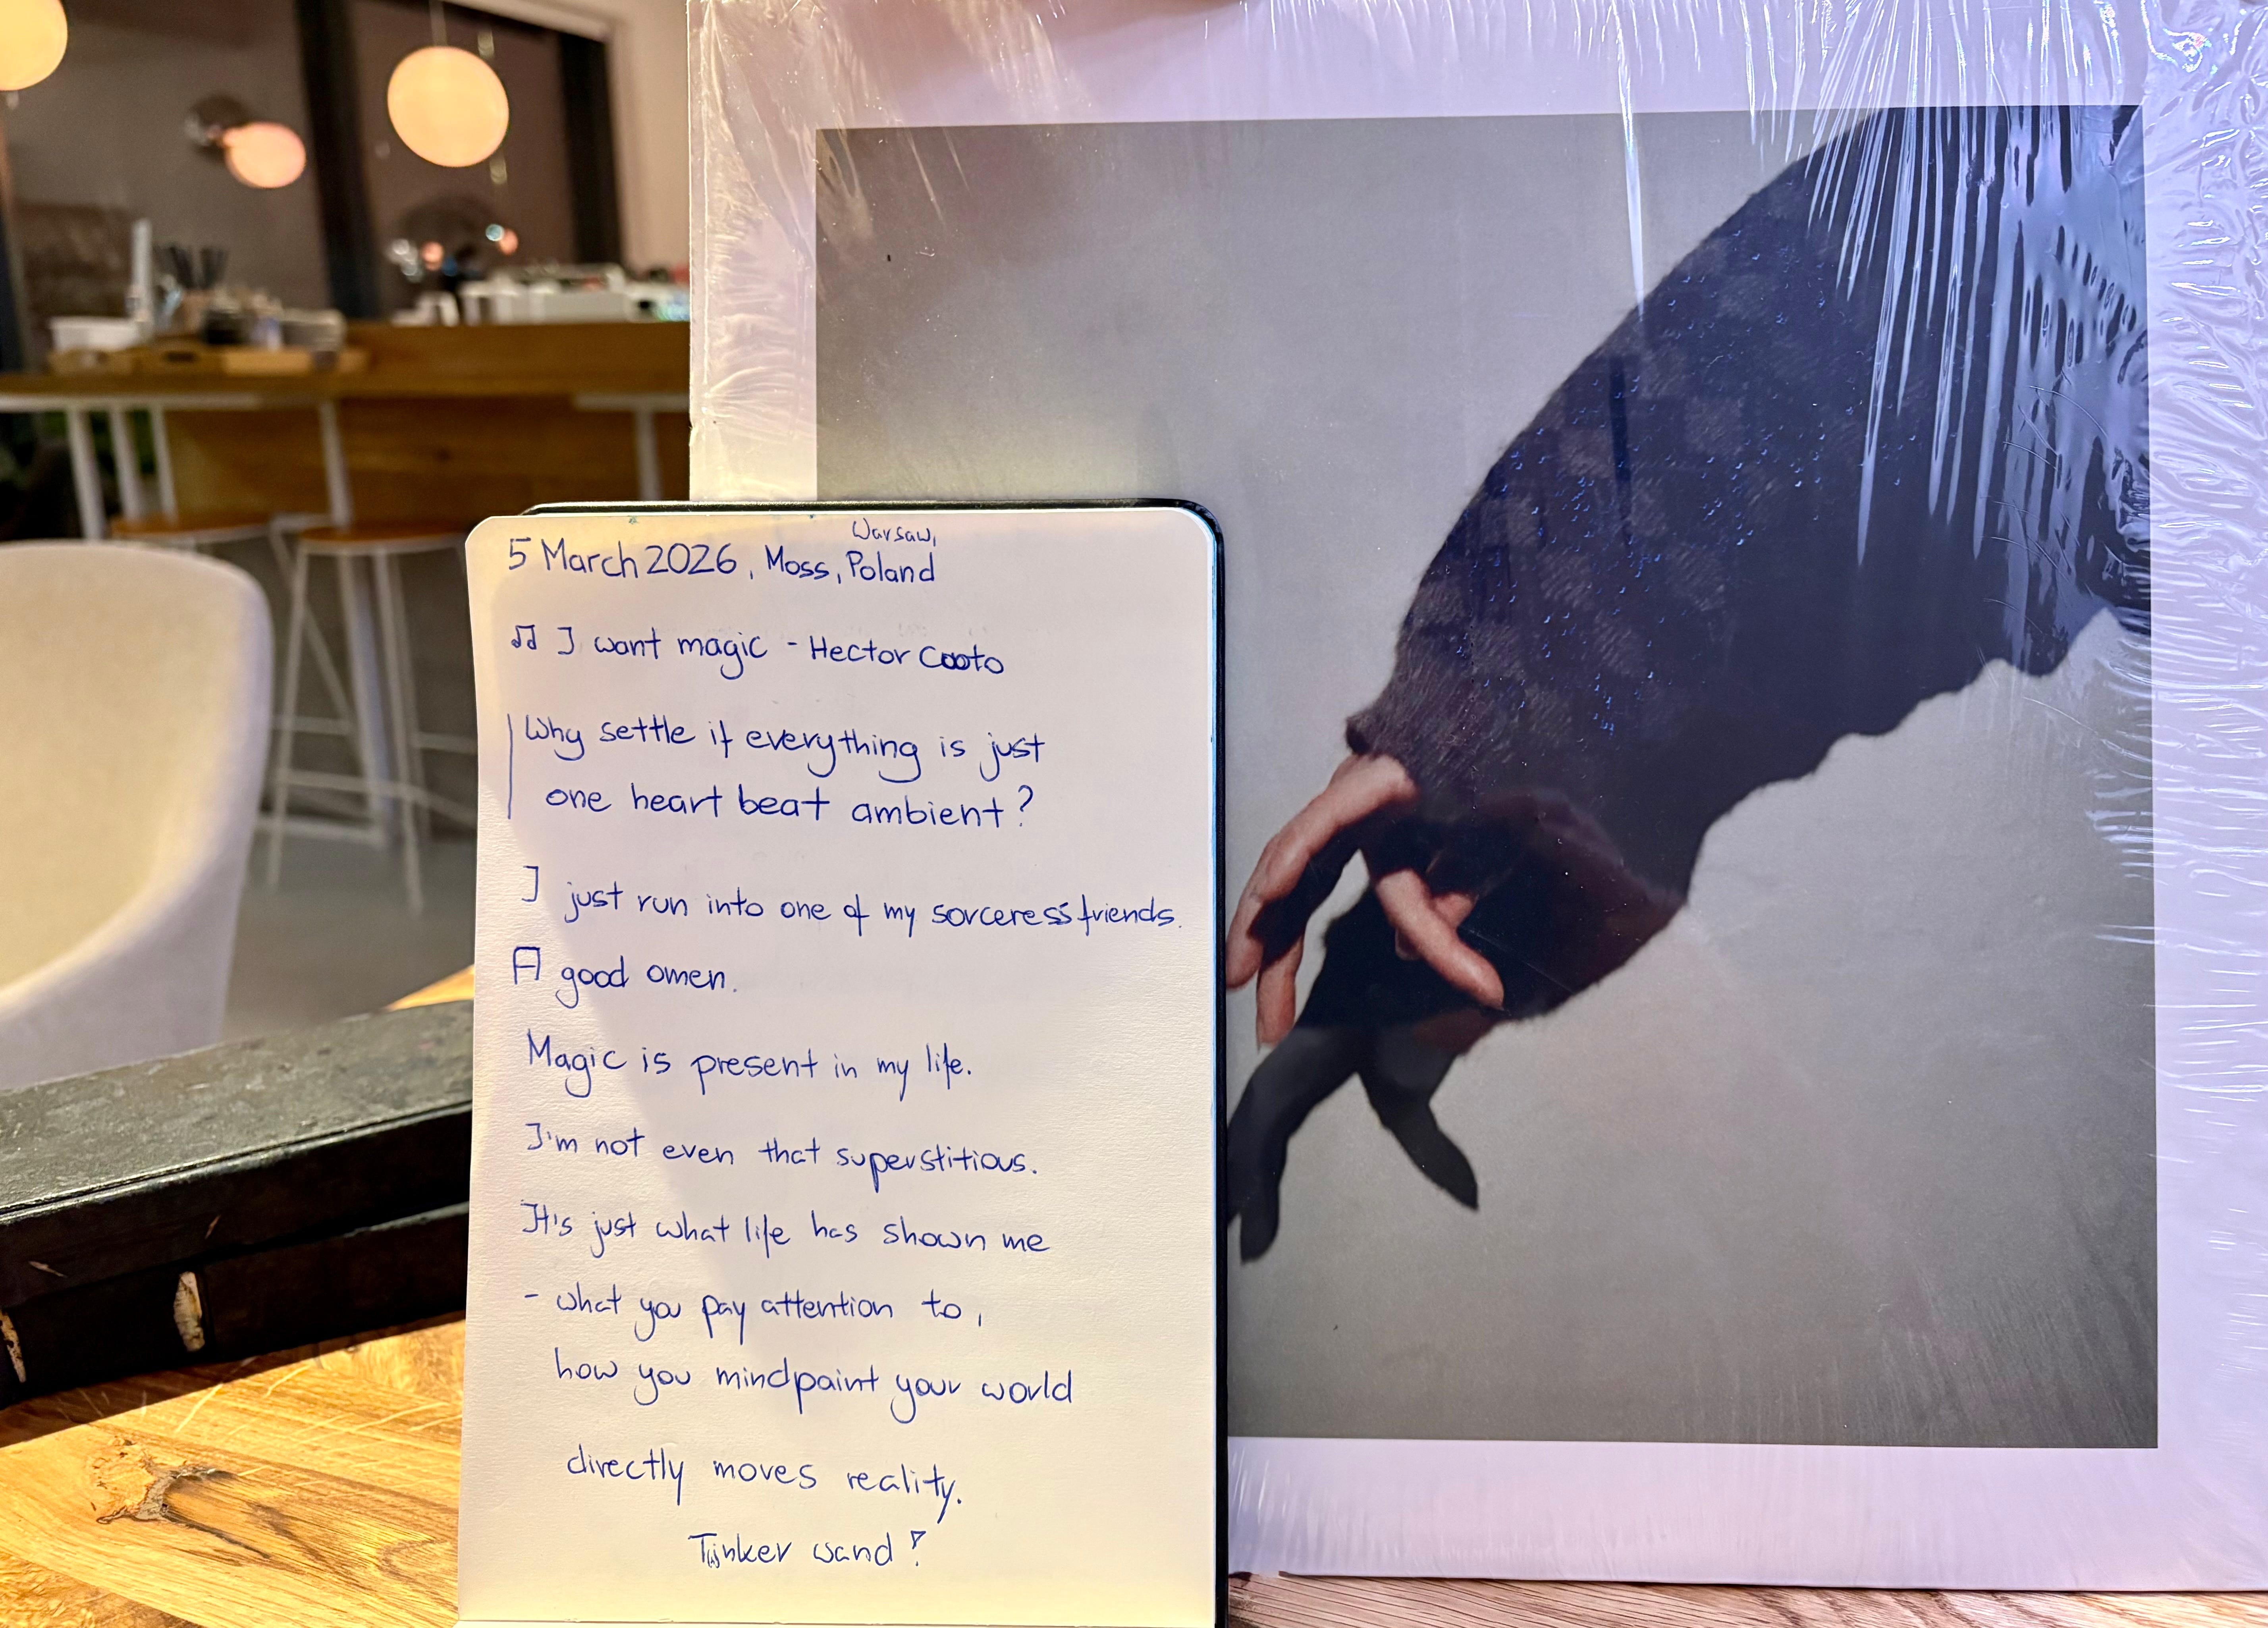 Warsaw,
5 March 2026, Moss, Poland
♫ I want magic - Hector Couto
Why settle if everything is just
one heart beat ambient?
I just run into one of my sorceress friends.
A good omen.
Magic is present in my life.
I'm not even that superstitious.
It's just what life has shown me
- what you pay attention to,
how you mindpaint your world
directly moves reality.
Tinker wand!